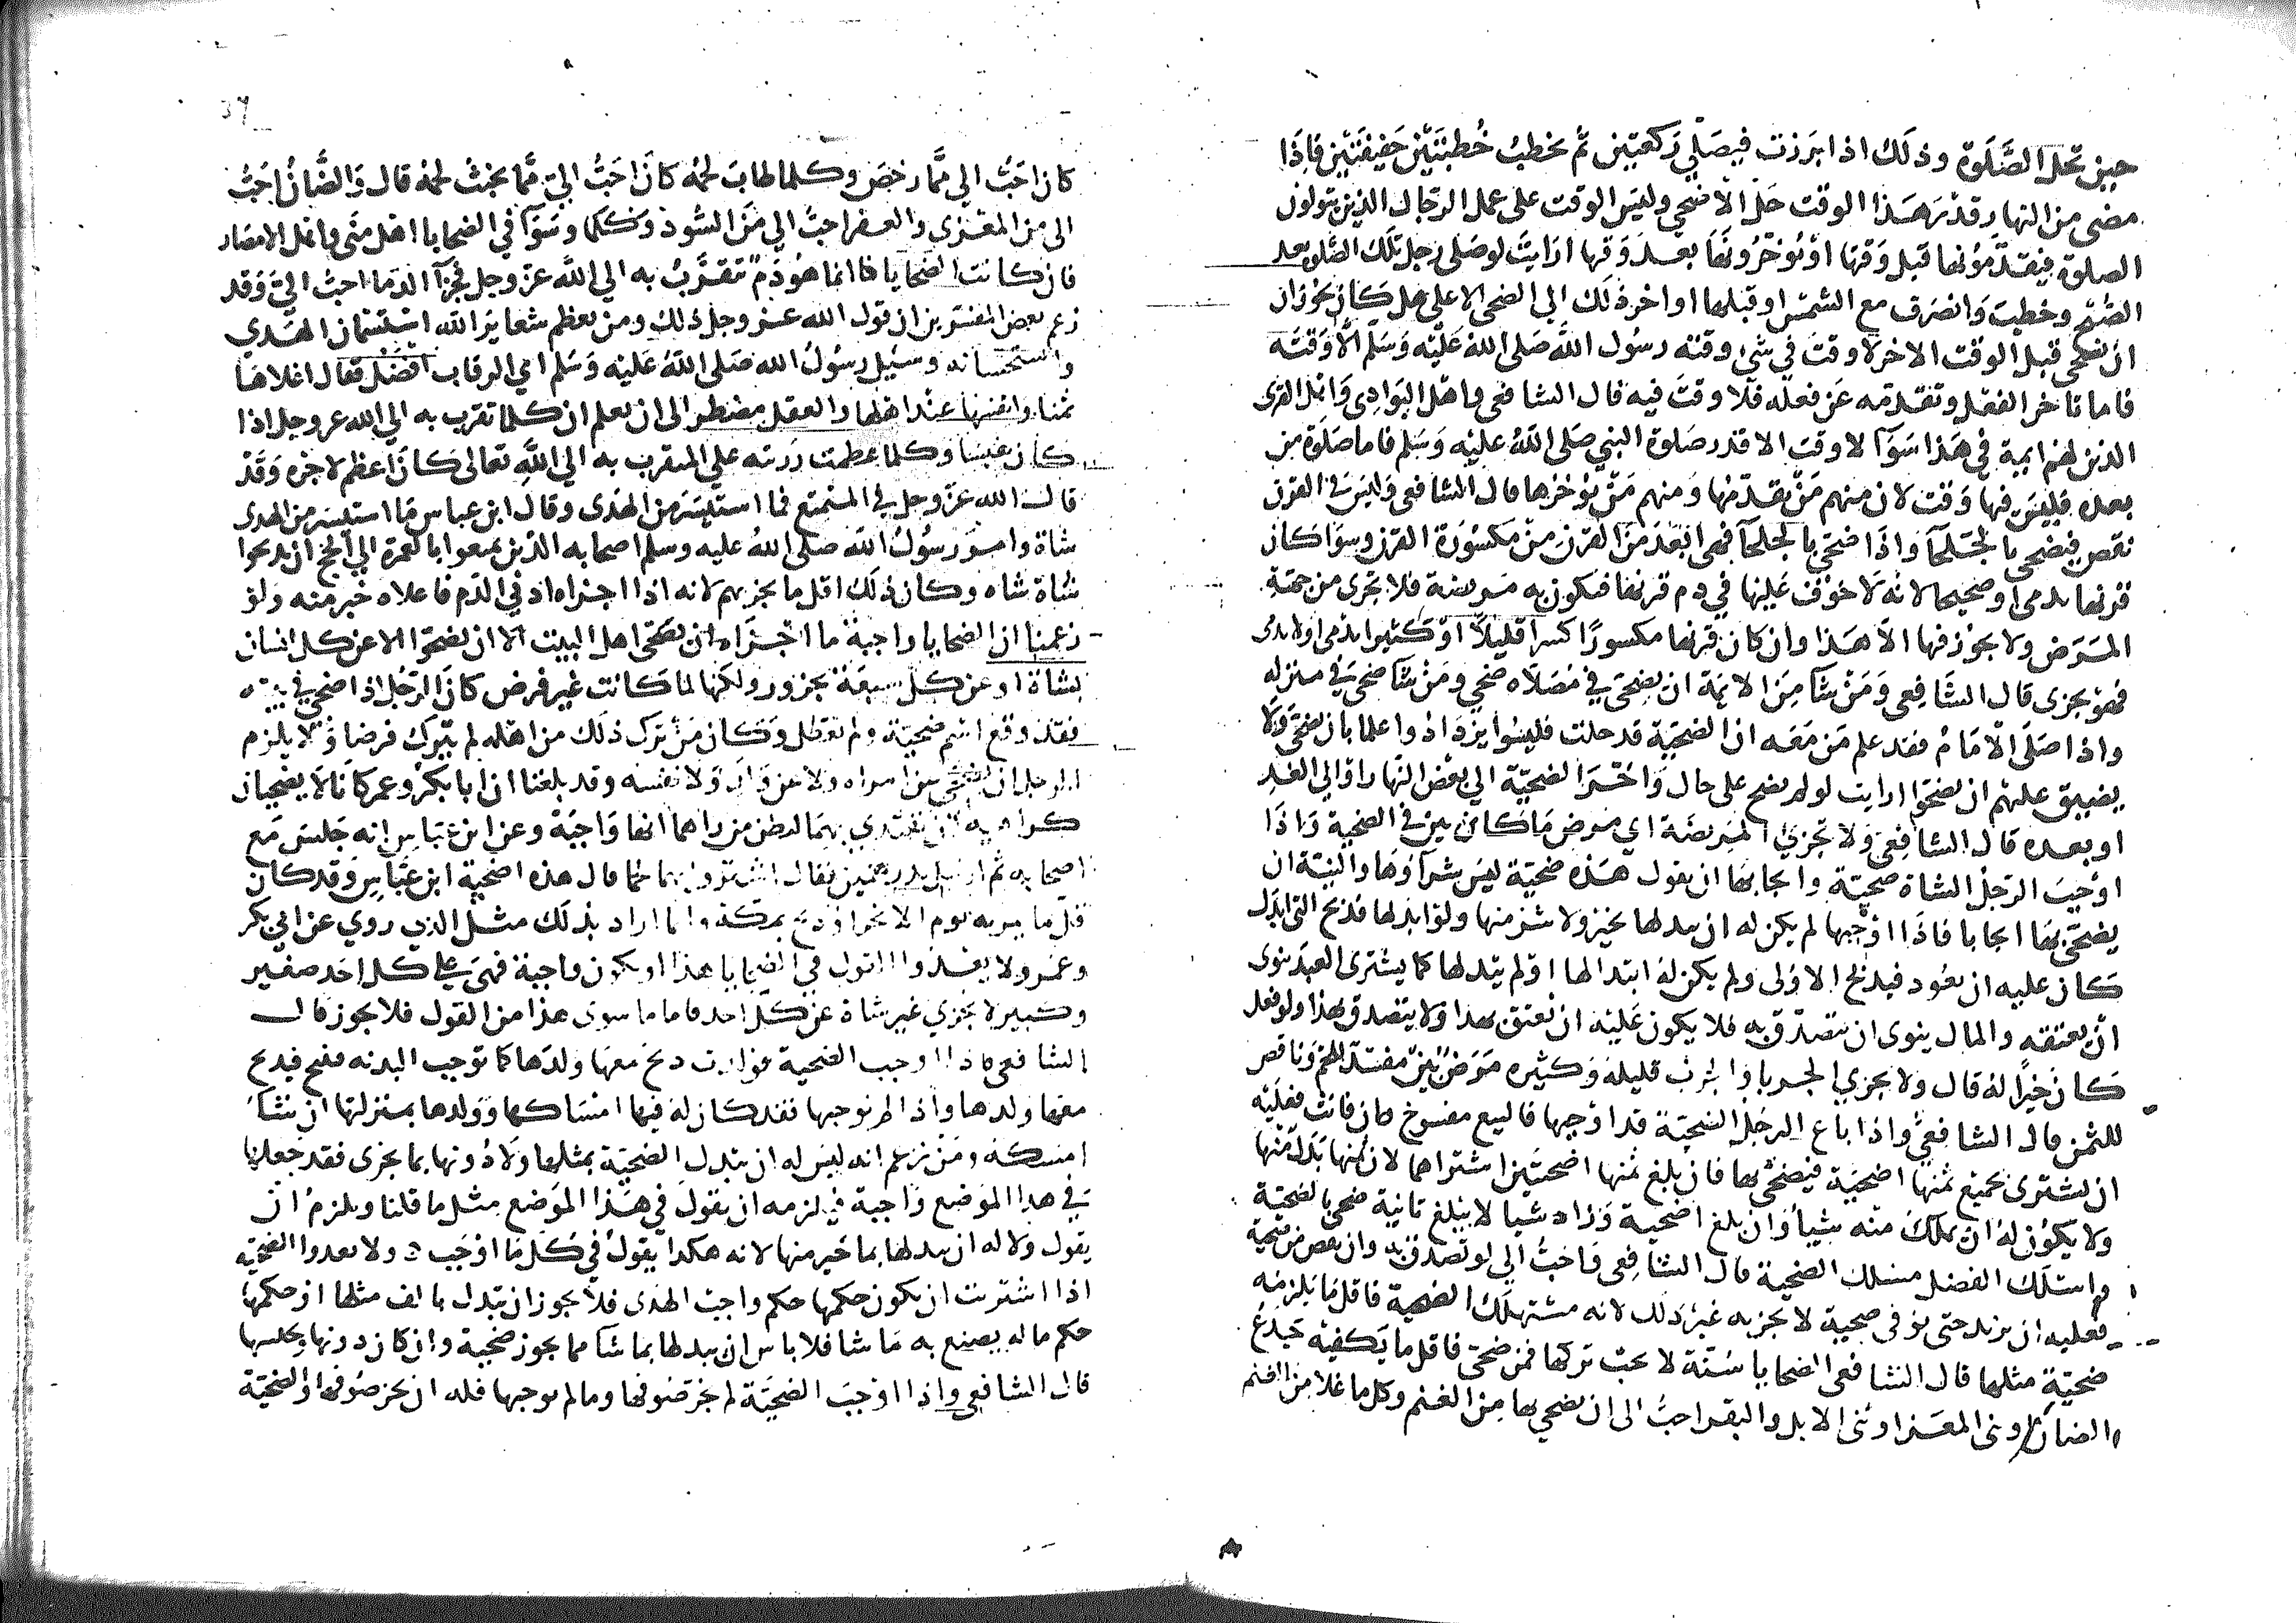 حين تحل الصلوة وذلك اذا برزت فيصلي ركعتين ثم يخطب خطبتين خفيفتين فاذا
مضى من النهار قدر هذا الوقت حل الاضحى وليس الوقت على عمل الرجال الذين يتولون
الصلوة فيقدمونها قبل وقتها او يؤخرونها بعد وقتها ارايت لو صلى رجل تلك الصلوة بعد
الصبح وخطب وانصرف مع الشمس او قبلها او اخر ذلك الى الضحى الاعلى هل كان يجوز ان
ان يضحى قبل الوقت الاخر لا وقت في شى وقته رسول الله صلى الله عليه وسلم الا وقته
فاما تاخر الفعل وتقدمه عن فعله فلا وقت فيه قال الشافعى واهل البوادي واهل القرى
الذين لهم ايمة في هذا سوآ لا وقت الا قدر صلوة النبي صلى الله عليه وسلم فاما صلوة من
بعده فليس فيها وقت لان منهم من يقدمها ومنهم من يؤخرها قال الشافعى وليس في القرن
نقص فيضحى بالجلحآ واذا ضحى بالجلحآ فهى ابعد من القرن من مكسورة القرن وسوآ كان
قرنها يدمى او صحيحا لانه لا خوف عليها في دم قرنها فتكون به مريضة فلا تجزى من جهة
المرض ولا يجوز فيها الا هذا وان كان قرنها مكسورا كسرا قليلا او كثيرا يدمى او لا يدمى
فهو يجزى قال الشافعى ومن شآ من الايمة ان يضحى في مصلاه ضحى ومن شآ ضحى في منزله
واذا صلى الامام فقد علم من معه ان الضحية قد حلت فليسوا يزدادوا علما بان يضحى ولا
يضيق عليهم ان يضحوا ارايت لو لم يضح على حال واخر الضحية الى بعض النهار او الى الغد
او بعده قال الشافعى ولا تجزي المريضة اي مرض ما كان بين في الضحية واذا
اوجب الرجل الشاة ضحية وايجابها ان يقول هذه ضحية ليس شرآؤها والنية ان
يضحى بها ايجابا فاذا اوجبها لم يكن له ان يبدلها بخير ولا شر منها ولو ابدلها فذبح التى ابدل
كان عليه ان يعود فيذبح الاولى ولم يكن له ابتدالها او لم يبدلها كما يشترى العبد ينوى
ان يعتقه والمال ينوى ان يتصدق به فلا يكون عليه ان يعتق هذا ولا يتصدق بهذا ولو فعل
كان خيرا له قال ولا يجزي الجربا والجرب قليله وكثيره مرض بين مفسد للحم وناقص
للثمن قال الشافعي واذا باع الرجل الضحية قد اوجبها فالبيع مفسوخ فان فاتت فعليه
ان يشترى بجميع ثمنها اضحية فيضحى بها فان بلغ ثمنها اضحيتين اشتراهما لان ثمنها بدل منها
ولا يكون له ان يملك منه شيأ وان بلغ اضحية وزاد شيا لا يبلغ ثانية ضحى بالضحية
واسلك الفضل مسلك الضحية قال الشافعى واحب الى لو تصدق به وان نقص من ضحية
فعليه ان يزيد حتى يوفى ضحية لا يجزيه غير ذلك لانه مستهلك الضحية فاقل ما يلزمه
ضحية مثلها قال الشافعى الضحايا سنة لا يحب تركها فمن ضحى فاقل ما يكفيه جذع
الضان او ثنى المعز او ثنى الابل والبقر احب الى ان يضحى بها من الغنم وكل ما غلا من الغنم
كان احب الي مما رخص وكلما طاب لحمه كان احب الي مما يخبث لحمه قال والضان احب
الى من المعزى والعفر احب الي من السود وكلما وسوآ في الضحايا اهل منى واهل الامصار
فان كانت الضحايا فانما هو دم تقرب به الي الله عز وجل فخير الدما احب الي وقد
زعم بعض المفسرين ان قول الله عز وجل ذلك ومن يعظم شعاير الله استسمان الهدي
واستحسانه وسيل رسول الله صلى الله عليه وسلم اي الرقاب افضل فقال اغلاها
ثمنا وانفسها عند اهلها والعقل مضطر الى ان يعلم ان كلما تقرب به الي الله عز وجل اذا
كان نفيسا وكلما عظمت رزيته علي المتقرب به الي الله تعالى كان اعظم لاجره وقد
قال الله عز وجل في المتمتع فما استيسر من الهدى وقال ابن عباس ما استيسر من الهدى
شاة وامر رسول الله صلى الله عليه وسلم اصحابه الذين تمتعوا بالعمرة الي الحج ان يذبحوا
شاة شاه وكان ذلك اقل ما يجزيهم لانه اذا اجزاه ادنى الدم فاعلاه خير منه ولو
زعمنا ان الضحايا واجبة ما اجزاه ان يضحى اهل البيت الا ان يضحوا الا عن كل انسان
بشاة او عن كل سبعة بجزور ولكنها لما كانت غير فرض كان الرجل اذا ضحى في بيته
فقد وقع اسم ضحية ولم تعطل وكان من ترك ذلك من اهله لم يترك فرضا ولا يلزم
الرجل ان يضحى عن امراه ولا عن ولد ولا نفسه وقد بلغنا ان ابا بكر وعمر كانا لا يضحيان
كراهية ان يقتدي بهما ليظن من راهما انها واجبة وعن ابن عباس انه جلس مع
اصحابه ثم ارسل بدرهمين فقال اشتروا بهما لحما ثم قال هذه اضحية ابن عباس وقد كان
قل ما يمر به يوم الا نحر او ذبح بمكة وانما اراد بذلك مثل الذي روي عن ابي بكر
وعمر ولا يعدوا القول في الضحايا هذا او يكون واجبة فهى على كل احد صغير
وكبير لا يجزي غير شاة عن كل احد فاما ما سوى هذا من القول فلا يجوز قال
الشافعى فاذا اوجب الضحية فولدت ذبح معها ولدها كما توجب البدنه فتنتج فيذبح
معها ولدها واذا لم يوجبها فقد كان له فيها امساكها وولدها بمنزلتها ان شآ
امسكه ومن زعم انه ليس له ان يبدل الضحية بمثلها ولا دونها بما يجزى فقد جعلها
في هذا الموضع واجبة فيلزمه ان يقول في هذا الموضع مثل ما قلنا ويلزم ان
يقول ولا له ان يبدلها بما خير منها لانه هكذا يقول في كل ما اوجب ولا يعدوا الضحية
اذا اشتريت ان يكون حكمها حكم واجب الهدى فلا يجوز ان تبدل بالف مثلها او حكمها
حكم ماله يصنع به ما شا فلا باس ان يبدلها بما شآ مما يجوز ضحية وان كان دونها ويحبسها
قال الشافعي واذا اوجب الضحية لم يجز صوفها وما لم يوجبها فله ان يجز صوفها والضحية